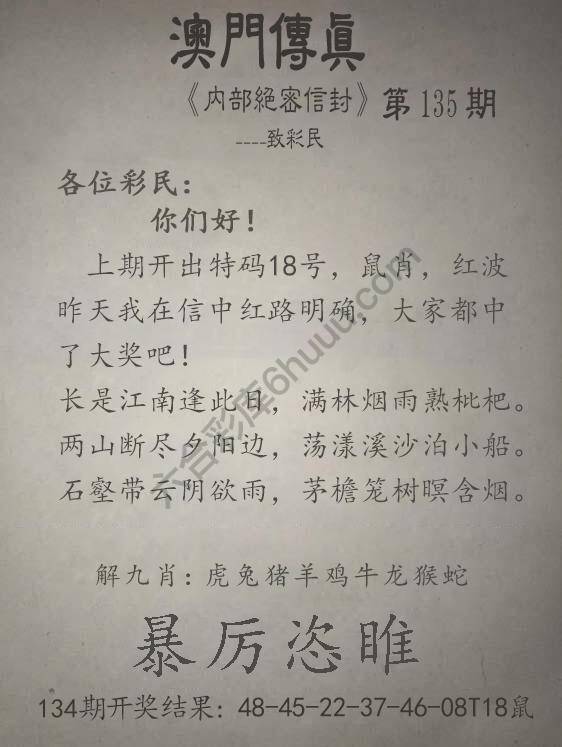 澳門傳眞
《内部絕密信封》第135期
----致彩民
各位彩民：
你们好！
上期开出特码18号，鼠肖，红波
昨天我在信中红路明确，大家都中
了大奖吧！
长是江南逢此日，满林烟雨熟枇杷。
两山断尽夕阳边，荡漾溪沙泊小船。
石壑带云阴欲雨，茅檐笼树暝含烟。
六合彩库6huuu.com
解九肖：虎兔猪羊鸡牛龙猴蛇
暴厉恣睢
134期开奖结果：48-45-22-37-46-08T18鼠